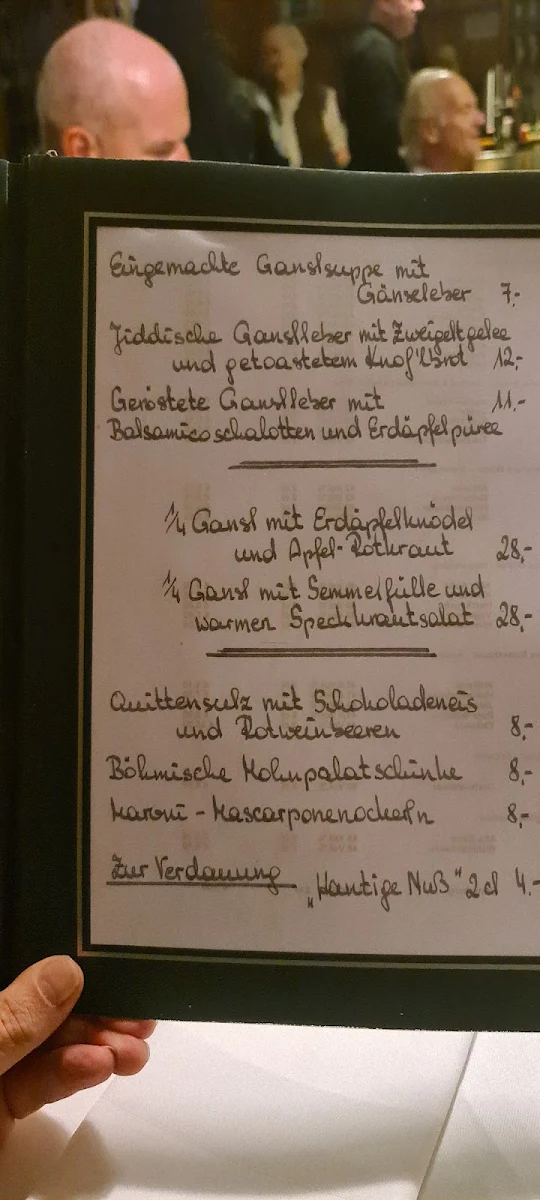 Eingemachte Ganslsuppe mit
Gänseleber 7,-
Jiddische Ganslleber mit Zweigeltgelee
und getoastetem Knof'lbrot 12,-
Geröstete Ganslleber mit 11,-
Balsamicoschalotten und Erdäpfelpüree
1/4 Gansl mit Erdäpfelknödel
und Apfel-Rotkraut 28,-
1/4 Gansl mit Semmelfülle und
warmen Speckkrautsalat 28,-
Quittensulz mit Schokoladeneis
und Rotweinbeeren 8,-
Böhmische Mohnpalatschinke 8,-
Maroni-Mascarponenockerln 8,-
Zur Verdauung „Hantige Nuß" 2cl 4,-